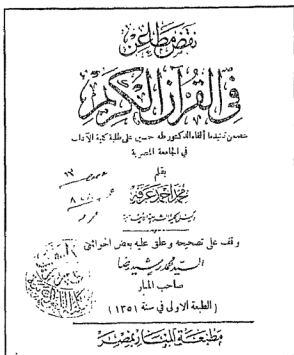 نقض مطاعن
في القرآن الكريم
يتضمن تفنيد ما ألقاه الدكتور طه حسين على طلبة كلية الآداب
في الجامعة المصرية
بقلم
محمد أحمد عرفة
وكيل كلية الشريعة الإسلامية
وقف على تصحيحه وعلق عليه بعض الحواشي
السيد محمد رشيد رضا
صاحب المنار
(الطبعة الاولى في سنة ١٣٥١)
مطبعة المنار بمصر